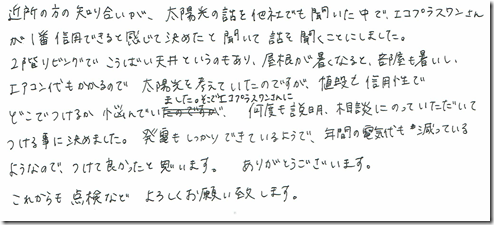 近所の方の知り合いが、太陽光の話を他社でも聞いた中で、エコプラスワンさん
が1番信用できると感じて決めたと聞いて話を聞くことにしました。
2階リビングでこうばい天井というのもあり、屋根が暑くなると、部屋も暑いし、
エアコン代もかかるので太陽光を考えていたのですが、値段も信用性で
ました。そこでエコプラスワンさんに
どこでつけるか悩んでいたのですが、何度も説明、相談にのっていただいて
つける事に決めました。発電もしっかりできているようで、年間の電気代も減っている
ようなので、つけて良かったと思います。ありがとうございます。
これからも点検などよろしくお願い致します。